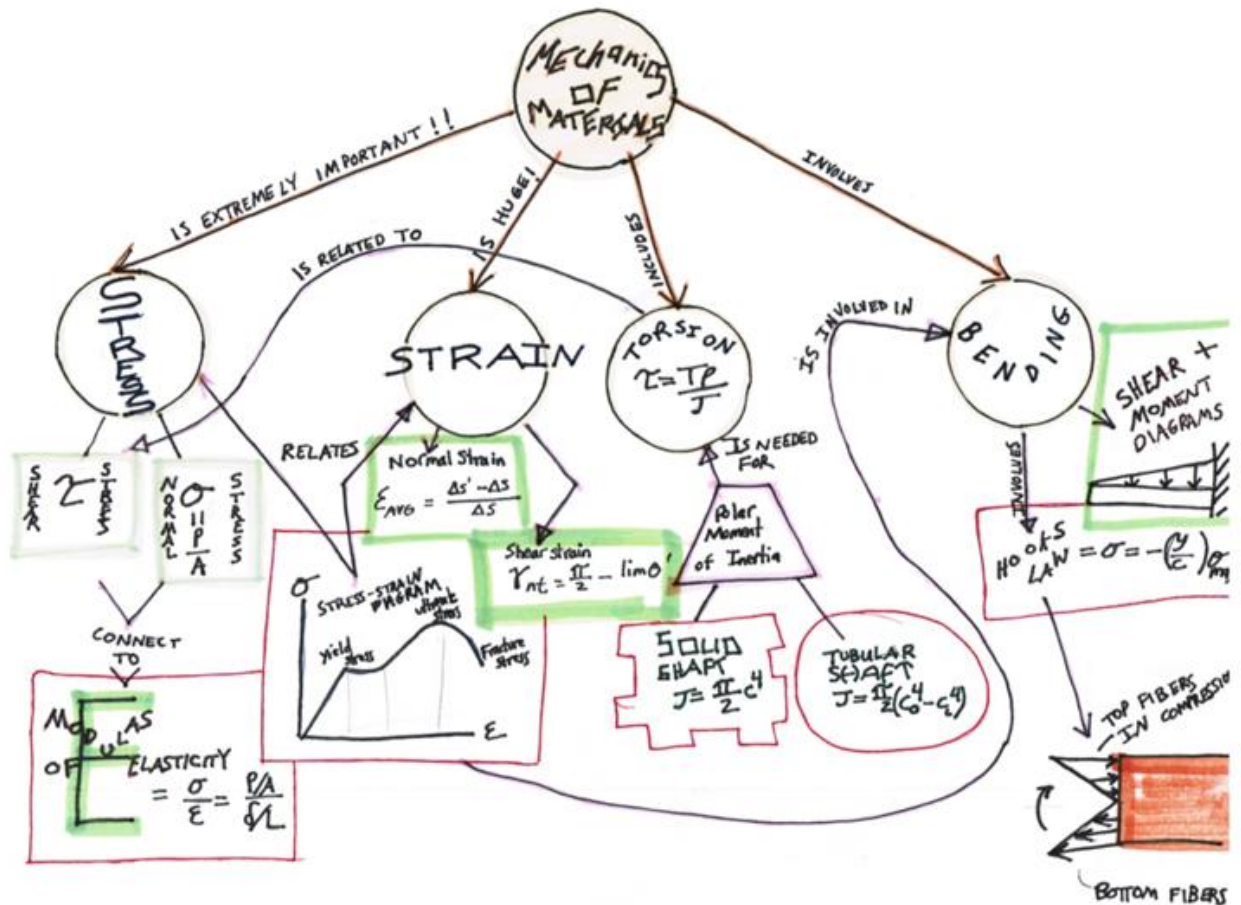 MEChanics
OF
MATERIALS
IS EXTREMELY IMPORTANT!!
IS HUGE!
INCLUDES
INVOLVES
IS RELATED TO
STRESS
STRAIN
TORSION
τ = Tρ/J
IS INVOLVED IN
BENDING
SHEAR +
MOMENT
DIAGRAMS
SHEAR
τ
STRESS
NORMAL
σ = P/A
STRESS
RELATES
Normal Strain
ε AVG = Δs' - Δs / Δs
Shear strain
γnt = π/2 - lim θ'
IS NEEDED
FOR
Polar
Moment
of Inertia
INVOLVES
HOOKS
LAW = σ = -(y/c) σm
CONNECT
TO
MODULAS
OF ELASTICITY
E
= σ/ε = P/A / δ/L
σ
STRESS-STRAIN
DIAGRAM
ultimate
stress
Yield
stress
Fracture
stress
ε
SOLID
SHAFT
J = π/2 c⁴
TUBULAR
SHAFT
J = π/2 (Co⁴ - Ci⁴)
TOP FIBERS
IN COMPRESSIO
BOTTOM FIBERS